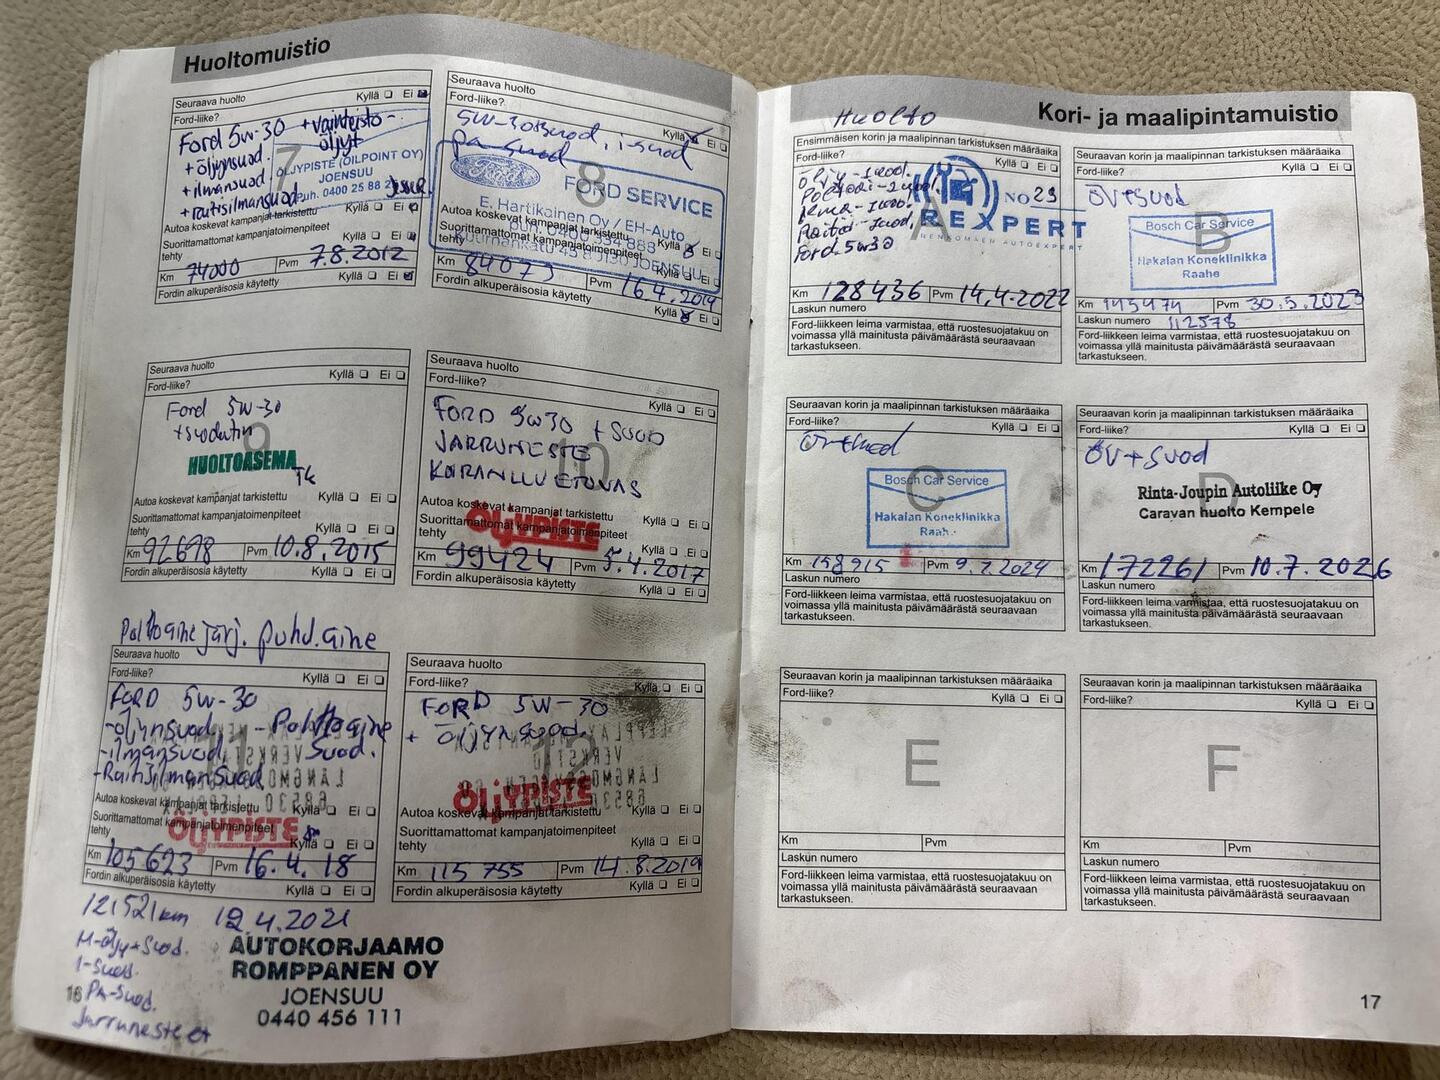 Huoltomuistio
Seuraava huolto
Ford-liike? Kyllä Ei
Ford 5W-30 + vaihteisto-
öljyt
+ öljynsuod.
+ ilmansuod.
+ raitisilmansuod.
7
ÖLJYPISTE (OILPOINT OY)
JOENSUU
Puh. 0400 25 88
Autoa koskevat kampanjat tarkistettu Kyllä Ei
Suorittamattomat kampanjatoimenpiteet
tehty Kyllä Ei
Km 74000 Pvm 7.8.2012
Fordin alkuperäisosia käytetty Kyllä Ei
Seuraava huolto
Ford-liike? Kyllä Ei
5W-30+suod, i-suod
pa-suod
8
Ford
FORD SERVICE
E. Hartikainen Oy / EH-Auto
puh. 0400 334 888
JOENSUU
Autoa koskevat kampanjat tarkistettu Kyllä Ei
Suorittamattomat kampanjatoimenpiteet
tehty Kyllä Ei
Km 84073 Pvm 16.4.2014
Fordin alkuperäisosia käytetty Kyllä Ei
Seuraava huolto
Ford-liike? Kyllä Ei
Ford 5W-30
+suodatin
9
HUOLTOASEMA
Autoa koskevat kampanjat tarkistettu Kyllä Ei
Suorittamattomat kampanjatoimenpiteet
tehty Kyllä Ei
Km 92678 Pvm 10.8.2015
Fordin alkuperäisosia käytetty Kyllä Ei
Seuraava huolto
Ford-liike? Kyllä Ei
FORD 5W30 + SUOD
JARRUNESTE
KORANLUVETUVAS
10
Autoa koskevat kampanjat tarkistettu Kyllä Ei
ÖLJYPISTE
Suorittamattomat kampanjatoimenpiteet
tehty Kyllä Ei
Km 99424 Pvm 5.4.2017
Fordin alkuperäisosia käytetty Kyllä Ei
Polttoainejärj. puhd.aine
Seuraava huolto
Ford-liike? Kyllä Ei
FORD 5W-30
-öljynsuod. - Polttoaine
-ilmansuod. suod.
-Raitisilmansuod
11
Autoa koskevat kampanjat tarkistettu Kyllä Ei
ÖLJYPISTE
Suorittamattomat kampanjatoimenpiteet
tehty Kyllä Ei
Km 105623 Pvm 16.4.18
Fordin alkuperäisosia käytetty Kyllä Ei
Seuraava huolto
Ford-liike? Kyllä Ei
FORD 5W-30
+ öljynsuod.
12
ÖLJYPISTE
Autoa koskevat kampanjat tarkistettu Kyllä Ei
Suorittamattomat kampanjatoimenpiteet
tehty Kyllä Ei
Km 115 755 Pvm 14.8.2019
Fordin alkuperäisosia käytetty Kyllä Ei
121521km 12.4.2021
M-öljy+suod.
I-suod.
PA-suod.
Jarruneste et
AUTOKORJAAMO
ROMPPANEN OY
JOENSUU
0440 456 111
16
Kori- ja maalipintamuistio
Huolto
Ensimmäisen korin ja maalipinnan tarkistuksen määräaika
Ford-liike? Kyllä Ei
Öljy-suod.
Polttoai-suod.
Ilma-suod.
Raitis-suod.
Ford 5w30
A
NO 23
REXPERT
Km 128436 Pvm 14.4.2022
Laskun numero
Ford-liikkeen leima varmistaa, että ruostesuojatakuu on
voimassa yllä mainitusta päivämäärästä seuraavaan
tarkastukseen.
Seuraavan korin ja maalipinnan tarkistuksen määräaika
Ford-liike? Kyllä Ei
ÖV+suod
B
Bosch Car Service
Hakalan Koneklinikka
Raahe
Km 145474 Pvm 30.5.2023
Laskun numero 112578
Ford-liikkeen leima varmistaa, että ruostesuojatakuu on
voimassa yllä mainitusta päivämäärästä seuraavaan
tarkastukseen.
Seuraavan korin ja maalipinnan tarkistuksen määräaika
Ford-liike? Kyllä Ei
ÖV+suod
C
Bosch Car Service
Hakalan Koneklinikka
Raahe
Km 158915 Pvm 9.2.2024
Laskun numero
Ford-liikkeen leima varmistaa, että ruostesuojatakuu on
voimassa yllä mainitusta päivämäärästä seuraavaan
tarkastukseen.
Seuraavan korin ja maalipinnan tarkistuksen määräaika
Ford-liike? Kyllä Ei
ÖV+suod
D
Rinta-Joupin Autoliike Oy
Caravan huolto Kempele
Km 172261 Pvm 10.7.2026
Laskun numero
Ford-liikkeen leima varmistaa, että ruostesuojatakuu on
voimassa yllä mainitusta päivämäärästä seuraavaan
tarkastukseen.
Seuraavan korin ja maalipinnan tarkistuksen määräaika
Ford-liike? Kyllä Ei
E
Km Pvm
Laskun numero
Ford-liikkeen leima varmistaa, että ruostesuojatakuu on
voimassa yllä mainitusta päivämäärästä seuraavaan
tarkastukseen.
Seuraavan korin ja maalipinnan tarkistuksen määräaika
Ford-liike? Kyllä Ei
F
Km Pvm
Laskun numero
Ford-liikkeen leima varmistaa, että ruostesuojatakuu on
voimassa yllä mainitusta päivämäärästä seuraavaan
tarkastukseen.
17